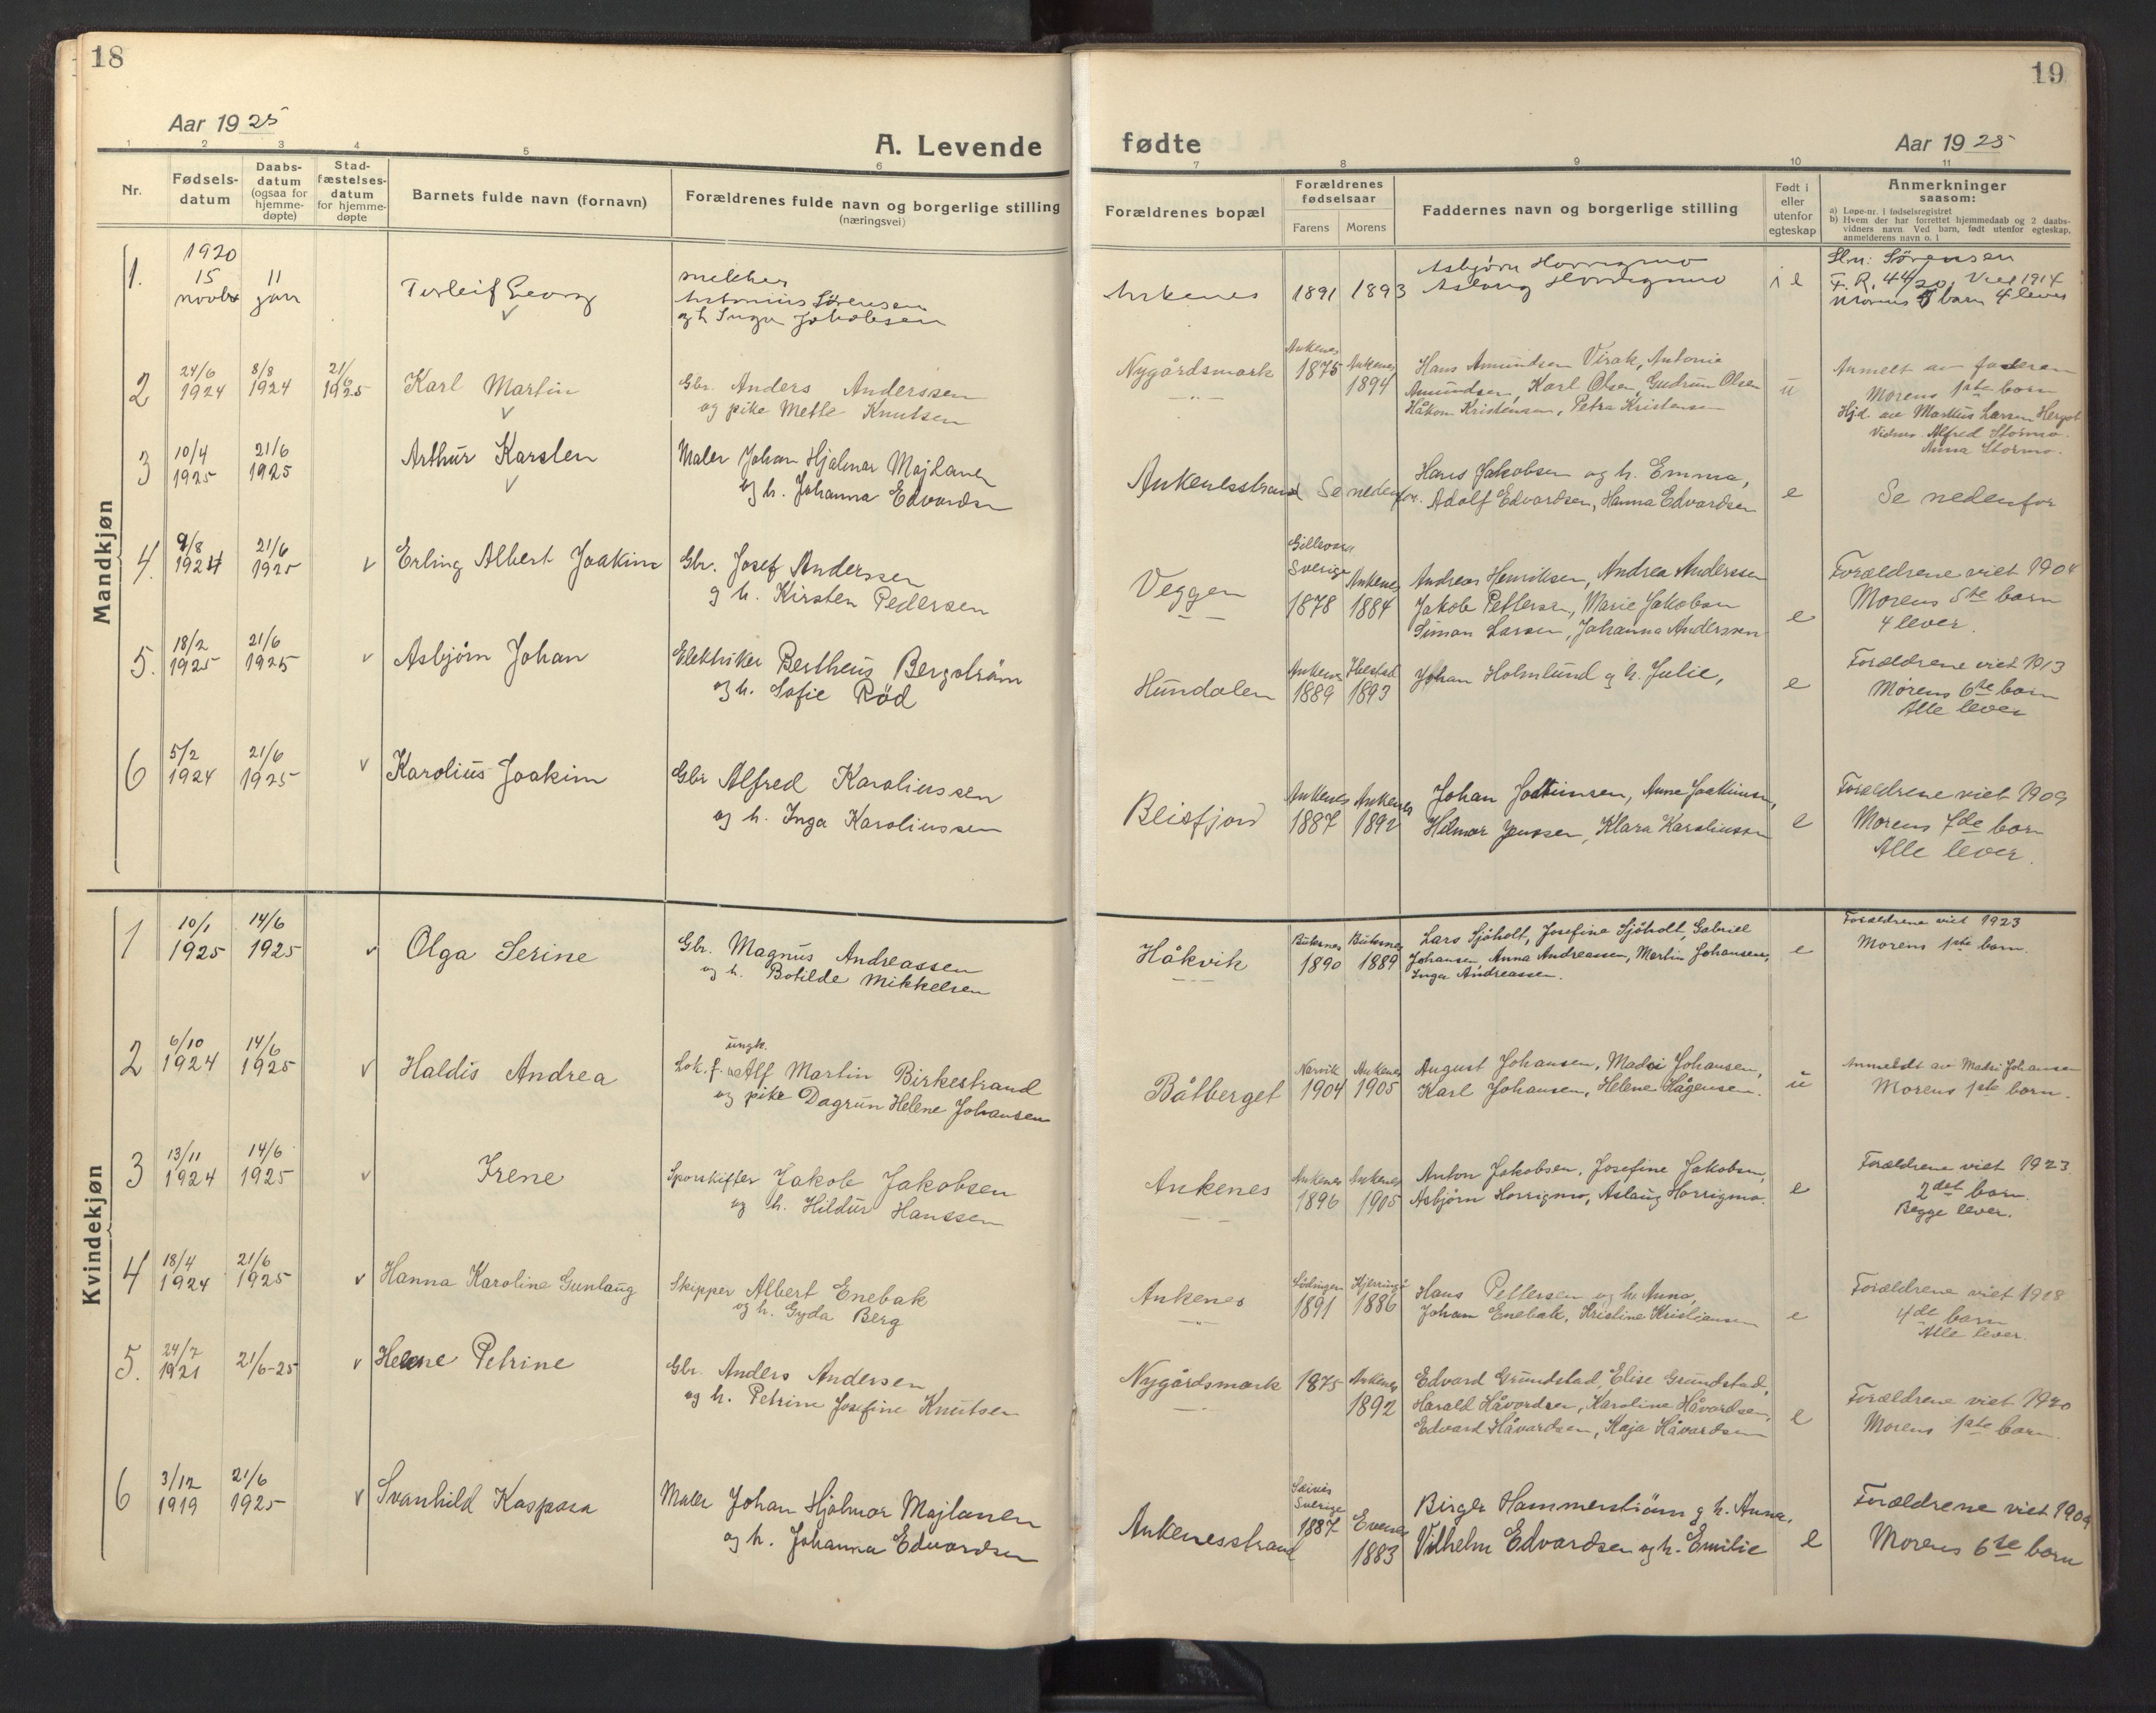 18
Aar 1925
A. Levende
1 2 3 4 5 6
Nr.
Fødsels-
datum
Daabs-
datum
(ogsaa for
hjemme-
døpte)
Stad-
fæstelses-
datum
for hjemme-
døpte
Barnets fulde navn (fornavn)
Forældrenes fulde navn og borgerlige stilling
(næringsvei)
Mandkjøn
1.
1920
15
novbr
11
jan
Torleif Georg
Antonius Sørensen
og h Inga Jakobsen
2
24/6
1924
8/8
1924
21/
6
1925
Karl Martin
Gbr. Anders Anderssen
og pike Mette Knutsen
3
10/4
1925
21/6
1925
Arthur Karsten
Maler Johan Hjalmar Majlanen
og h. Johanna Edvardsn
4.
9/8
1924
21/6
1925
v Erling Albert Joakim
Gbr. Josef Anderssen
og h. Kirsten Pedersen
5.
18/2
1925
21/6
1925
v Asbjørn Johan
Elektriker Bertheus Bergstrøm
og h. Sofie Rød
6
5/2
1924
21/6
1925
v Karolius Joakim
Gbr Alfred Karoliussen
og h. Inga Karoliussen
Kvindekjøn
1
10/1
1925
14/6
1925
v Olga Serine
Gbr. Magnus Andreassen
og h. Botilde Mikkelsen
2
6/10
1924
14/6
1925
v Haldis Andrea
ungk.
Lok.f. Alf Martin Birkestrand
og pike Dagrun Helene Johansen
3
13/11
1924
14/6
1925
v Irene
Sporskifter Jakob Jakobsen
og h. Hildur Hanssen
4
18/4
1924
21/6
1925
v Hanna Karoline Gunlaug
Skipper Albert Enebak
og h. Gyda Berg
5.
24/7
1921
21/6-25
v Helene Petrine
Gbr. Anders Andersen
og h. Petrine Josefine Knutsen
6
3/12
1919
21/6
1925
v Svanhild Kaspara
Maler Johan Hjalmar Majlanen
og h. Johanna Edvardsen
19
fødte
Aar 1925
7 8 9 10 11
Forældrenes bopæl
Forældrenes
fødselsaar
Farens Morens
Faddernes navn og borgerlige stilling
Født i
eller
utenfor
egteskap
Anmerkninger
saasom:
a) Løpe-nr. i fødselsregistret
b) Hvem der har forrettet hjemmedaab og 2 daabs-
vidners navn. Ved barn, født utenfor egteskap,
anmelderens navn o. l
Ankenes
1891 1893
Asbjørn Horrigmo
Aslaug Horrigmo
i e
Sln: Sørensen
F. R. 44/20. Viet 1914
Morens 5 barn 4 lever
Nygårdsmark
Ankenes
1875
Ankenes
1894
Hans Amundsen Virak, Antonie
Amundsen, Karl Olsen, Gudrun Olsen
Håkon Kristensen, Petra Kristensen
u
Anmelt av faderen
Morens 1ste barn
Hjd. av Markus Larsen Hergot
Vidner Alfred Stormo.
Anna Stormo.
Ankenesstrand
Se nedenfor.
Hans Jakobsen og h. Emma,
Adolf Edvardsen, Hanna Edvardsen
e
Se nedenfor
Veggen
Sverige
1878
Ankenes
1884
Andreas Henriksen, Andrea Anderssen
Jakob Pettersen, Marie Jakobsen
Simon Larsen, Johanna Anderssen
e
Forældrene viet 1904
Morens 5te barn
4 lever.
Hundalen
Ankenes
1889
Ibestad
1893
Johan Holmlund og h. Julie,
e
Forældrene viet 1913
Morens 6te barn
Alle lever
Beisfjord
Ankenes
1887
Ankenes
1892
Johan Joakimsen, Anna Joakimsen,
Hilmar Jenssen, Klara Karoliussen
e
Forældrene viet 1909
Morens 7de barn
Alle lever.
Håkvik
Buksnes
1890
Buksnes
1889
Lars Sjøholt, Josefine Sjøholt, Gabriel
Johansen, Anna Andreassen, Martin Johansen,
Inga Andreassen.
e
Forældrene viet 1923
Morens 1ste barn.
Båtberget
Narvik
1904
Ankenes
1905
August Johansen, Madsi Johansen,
Karl Johansen, Helene Hågensen.
u
Anmeldt av Madsi Johansen
Morens 1ste barn.
Ankenes
Ankenes
1896
Ankenes
1905
Anton Jakobsen, Josefine Jakobsen,
Asbjørn Horrigmo, Aslaug Horrigmo.
e
Forældrene viet 1923
2det barn.
Begge lever.
Ankenes
Lødingen
1891
Kjerringø
1886
Hans Pettersen og h. Anna,
Johan Enebak, Kristine Kristiansen
e
Forældrene viet 1918
4de barn
Alle lever.
Nygårdsmark
1875
Ankenes
1892
Edvard Grundstad, Elise Grundstad,
Harald Håvardsen, Karoline Håvardsen,
Edvard Håvardsen, Kaja Håvardsen
e
Forældrene viet 1920
Morens 1ste barn.
Ankenesstrand
Sverige
1887
Evenes
1883
Birger Hammerstrøm og h. Anna,
Vilhelm Edvardsen og h. Emilie
e
Forældrene viet 1904
Morens 6te barn